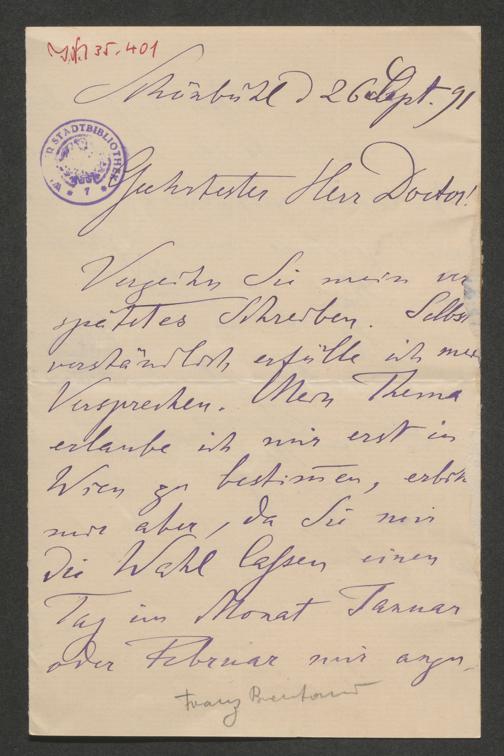 J.N. 35.401
Schönbühl d 26 Sept. 91
STADTBIBLIOTHEK
Geehrtester Herr Doctor!
Verzeihn Sie mein ver
spätetes Schreiben. Selbst
verständlich erfülle ich mein
Versprechen. Mein Thema
erlaube ich mir erst in
Wien zu bestim̄en, erbitte
mir aber, da Sie mir
die Wahl lassen einen
Tag im Monat Januar
oder Februar mir anzu-
Franz Brentano